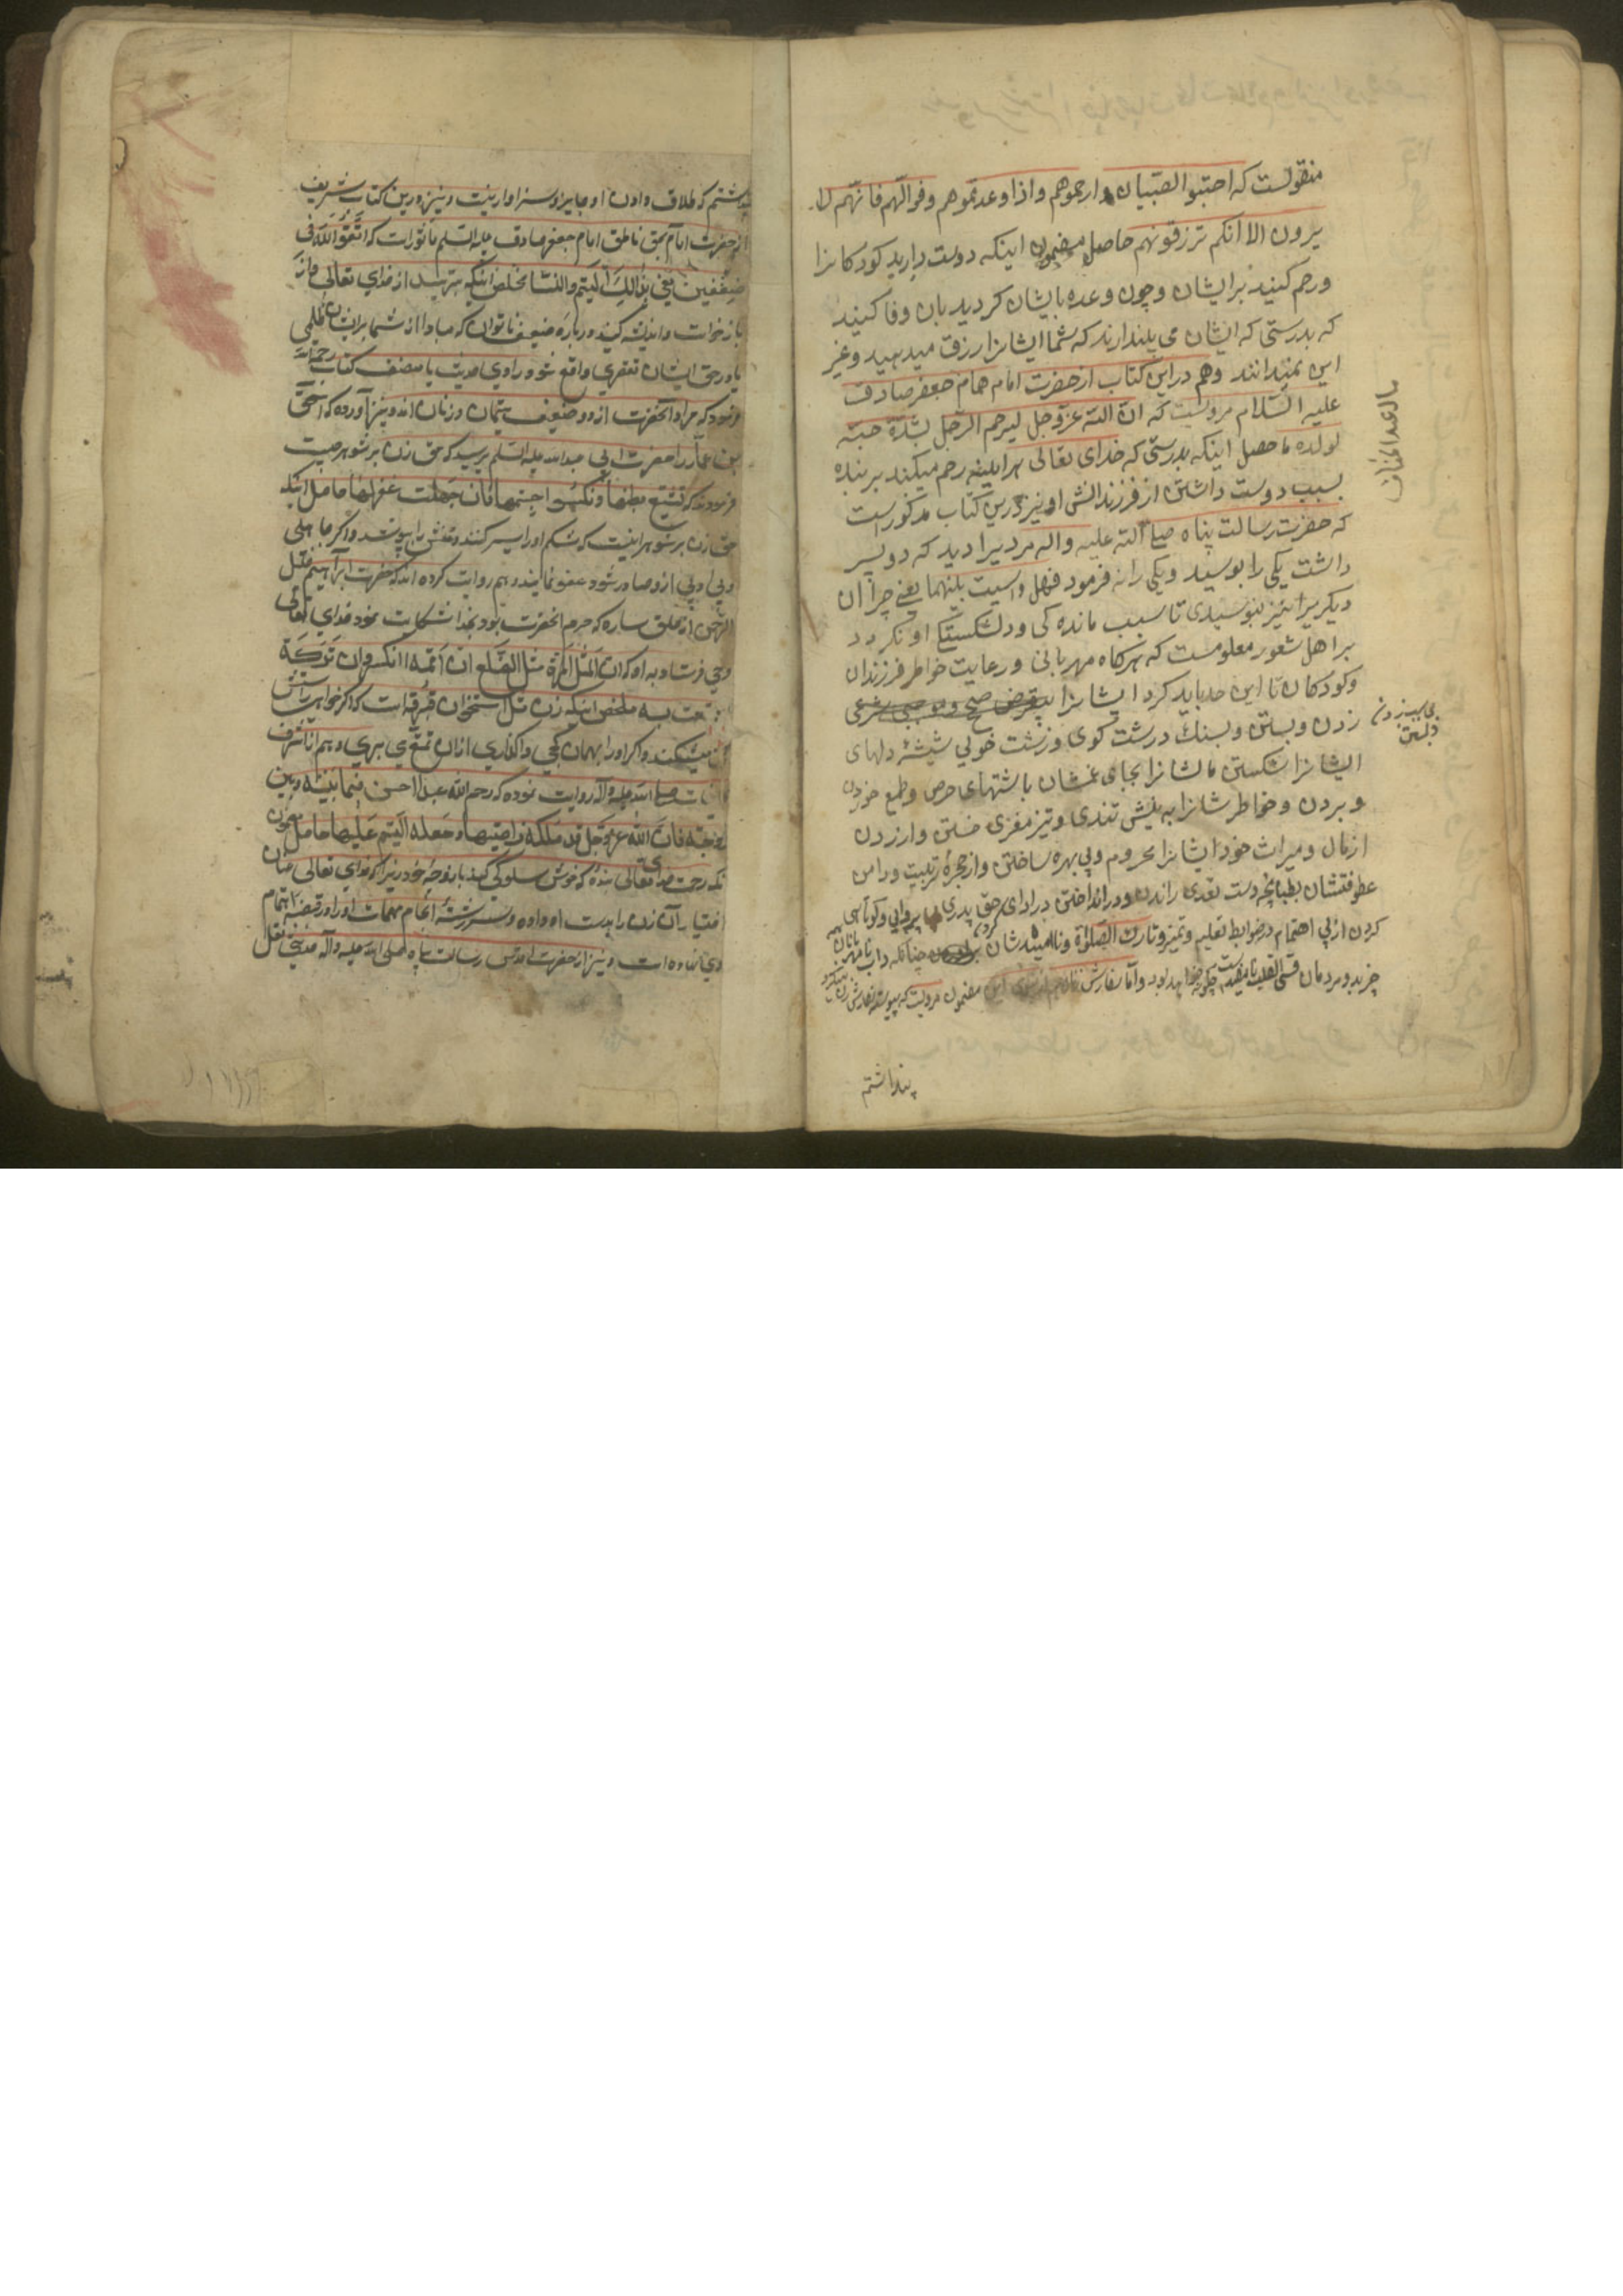 منقولست که احبوا الصبیان و ارحموهم واذا وعدتموهم وفوالهم فانهم لا
یرون الا انکم ترزقونهم حاصل مضمون اینکه دوست دارید کودکانرا
ورحم کنید برایشان و چون وعده بایشان کردید بان وفا کنید
که بدرستی که ایشان می پندارند که شما ایشانرا رزق میدهید وغیر
این نمیدانند وهم دراین کتاب ازحضرت امام همام جعفر صادق
علیه السلام مرویست که ان الله عزوجل لیرحم الرجل لشدة حبه
لولده ماحصل اینکه بدرستی که خدای تعالی هراینه رحم میکند بر بنده
بسبب دوست داشتن از فرزندانش او نیز درین کتاب مذکور است
که حضرت رسالت پناه صلی الله علیه واله مردیرا دید که دو پسر
داشت یکی را بوسید ویکی رانه فرمود فهل واسیت بینهما یعنی چرا ان
دیکریرا نیز نبوسیدی تا سبب مانده کی ودلشکستکی او نکردد
براهل شعور معلومست که هرکاه مهربانی ورعایت خاطر فرزندان
وکودکان تا این حد باید کرد ایشانرا بیغرض صحیح وموجبی شرعی
بی سبب زدن وبستن
زدن وبستن وبسنك درشت کوی وزشت خوئی شیشهٔ دلهای
ایشانرا شکستن مالشانرا بجای غمشان باشتهای حرص وطمع خوردن
وبردن وخواطرشانرا به نیش تندی وتیزمغزی خستن وارزدن
ازمال ومیراث خود ایشانرا محروم وبی بهره ساختن وازحجرهٔ تربیت ودامن
عطوفتشان بطپانچه دست تعدی راندن ودورانداختن درادای حق پدری بی پروایی وکوتاهی
کردن ازپی اهتمام درضوابط تعلیم وتمیز وتارك الصلوة ونامیدشان کردن چنانکه داب نامهربانان
خرید ومردمان قسی القلب چکونه خواهد بود واما سفارش زنان مضمون مرویست که پیوسته سفارش زن میکرد
پنداشتم
پنداشتم که طلاق دادن او جایز وسزاوار نیست ونیز درین کتاب شریف
ازحضرت امام بحق ناطق امام جعفر صادق علیه السلم ماثور است که اتقوا الله فی
ضعیفین یعنی بذالك الیتیم والنسا مخلص اینکه بترسید از خدای تعالی واز
بازخواست واندیشه کنید دربارهٔ ضعیف ناتوان که مبادا از شما برایشان ظلمی
یا درحق ایشان تقصیری واقع شود وراوی حدیث یا مصنف کتاب رحمه الله
فرمود که مراد آنحضرت از دو ضعیف یتیمان وزنان اند ونیز آورده که اسحق
بن عمار از حضرت ابی عبدالله علیه السلم پرسید که حق زن بر شوهر چیست
فرمودند که تشبع بطنها وتکسو اجنبها فان جهلت غفر لها حاصل اینکه
حق زن بر شوهر اینست که شکم اورا سیر کند وتنش را بپوشد واکر جاهلی
وبی ادبی ازو صادر شود عفو نمایند وهم روایت کرده اند که حضرت ابراهیم خلیل
الرحمن از خلق ساره که حرم انحضرت بود بخدا شکایت نمود خدای تعالی
وحی فرستاد به او که ان المثل المرأة مثل الضلع ان اقمته انکسر وان ترکته
استمتعت به ملخص اینکه زن مثل استخوان است که اکر خواهی راستش
میشکند واکر اورا بهمان کجی واکذاری ازان تمتعی بری وهم از اشرف
صلی الله علیه وآله روایت نموده که رحم الله عبدا احسن فیما بینه وبین
زوجته فان الله عزوجل قد ملکه ناصیتها وجعله القیم علیها حاصل مضمون
اینکه رحمت خدای تعالی بنده که خوش سلوکی کند با زوجهٔ خود زیرا که خدای تعالی عنان
اختیار آن زن را بدست او داده وسررشتهٔ انجام مهمات اورا درقبضهٔ اهتمام
وی نهاده است ونیز از حضرت اقدس رسالت پناه صلی الله علیه وآله حدیثی نقل